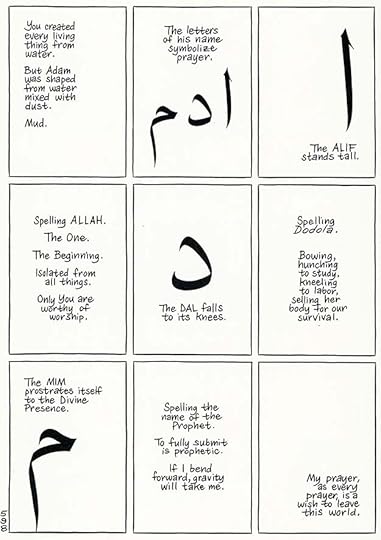 You created
every living
thing from
water.
But Adam
was shaped
from water
mixed with
dust.
Mud.
The letters
of his name
symbolize
prayer.
ادم
ا
The ALIF
stands tall.
Spelling ALLAH.
The One.
The Beginning.
Isolated from
all things.
Only You are
worthy of
worship.
د
The DAL falls
to its knees.
Spelling
Dodola.
Bowing,
hunching
to study,
kneeling
to labor,
selling her
body for our
survival.
The MIM
prostrates itself
to the Divine
Presence.
م
Spelling the
name of the
Prophet.
To fully submit
is prophetic.
If I bend
forward, gravity
will take me.
My prayer,
as every
prayer, is a
wish to leave
this world.
598